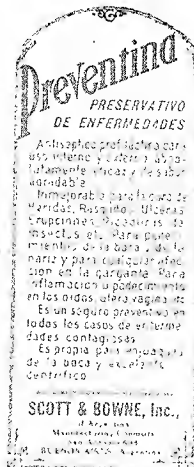 Preventina
PRESERVATIVO
DE ENFERMEDADES
Antiséptico profiláctico para
uso interno y externo abso-
lutamente eficaz y de sabor
agradable
Inmejorable para la cura de
Heridas, Rasguños, Úlceras
Erupciones, Picaduras de
insectos etc. Para
de la boca y de la
nariz y para cualquier afec-
ción en la garganta. Para
inflamación o padecimiento
en los oídos, útero vagina etc
Es un seguro preventivo en
todos los casos de enferme
dades contagiosas
Es propia para enjuagatorio
de la boca y excelente
dentífrico
SCOTT & BOWNE, Inc.,
Manufacturing Chemists
BUENOS AIRES, Argentina